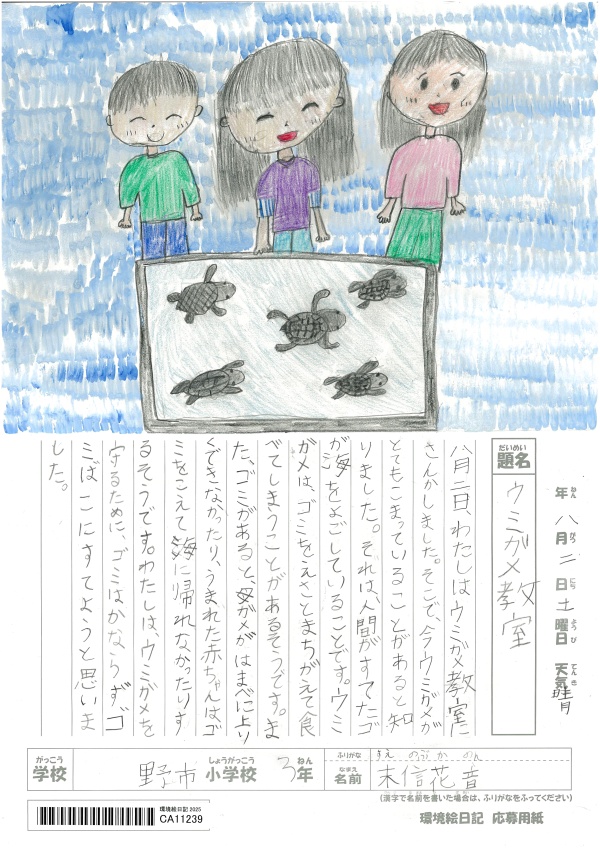 年 八月 二日 土曜日 天気 晴
ねん がつ にち ようび てんき
だいめい
題名
ウミガメ教室
八月二日、わたしはウミガメ教室に
さんかしました。そこで、今ウミガメが
とてもこまっていることがあると知
りました。それは、人間がすてたゴミ
が海をよごしていることです。ウミ
ガメは、ゴミをえさとまちがえて食
べてしまうことがあるそうです。ま
た、ゴミがあると、母ガメがはまべに上り
くできなかったり、うまれた赤ちゃんはゴ
ミをこえて海に帰れなかったりす
るそうです。わたしは、ウミガメを
守るために、ゴミはかならず、ゴ
ミばこにすてようと思いま
した。
がっこう
学校
野市
しょうがっこう
小学校
3年
ねん
ふりがな
すえ のぶ か のん
なまえ
名前
末信花音
(漢字で名前を書いた場合は、ふりがなをふってください)
環境絵日記 2025
CA11239
環境絵日記 応募用紙